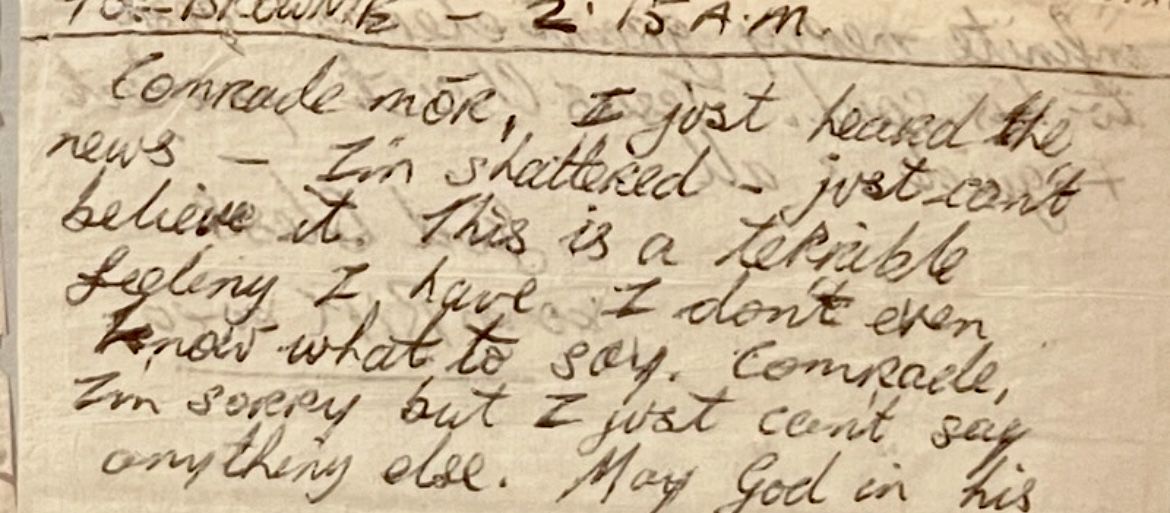 TO:- BROWNIE - 2.15 A.M.
Comrade mór, I just heard the
news - I'm shattered - just can't
believe it. This is a terrible
feeling I have. I don't even
know what to say. Comrade,
I'm sorry but I just can't say
anything else. May God in his